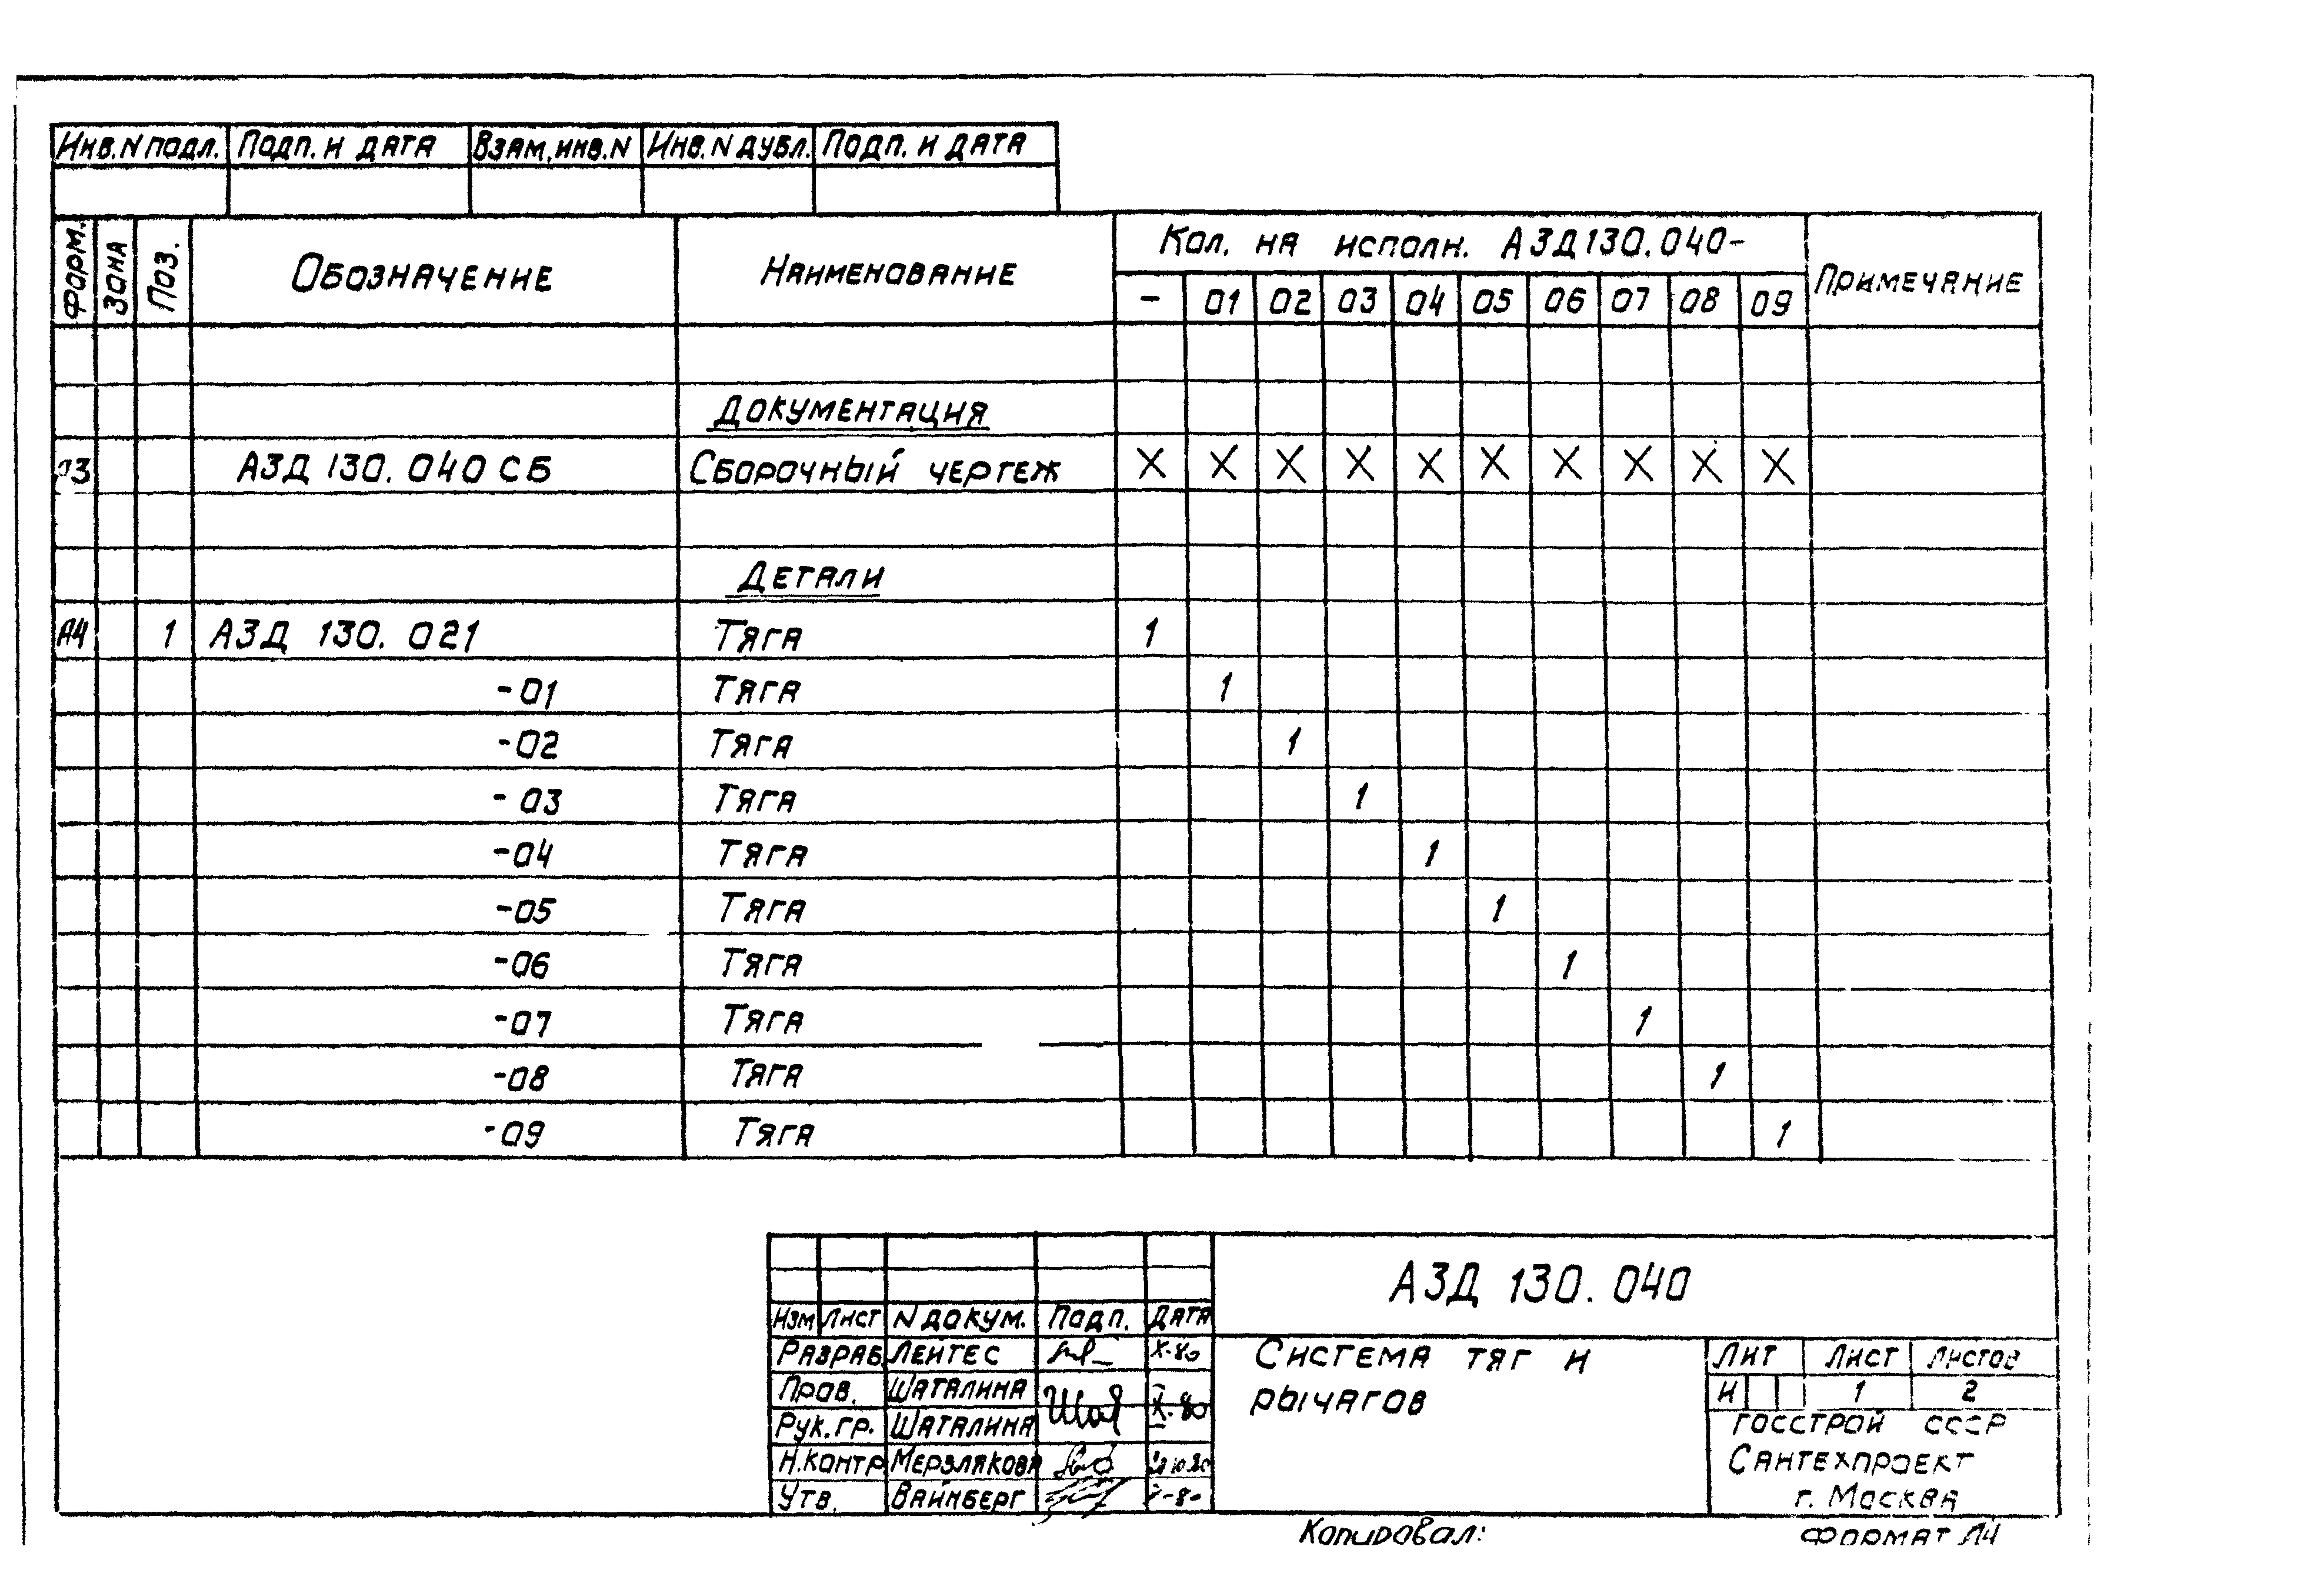 Инв.N подл. Подп. и дата Взам. инв. N Инв. N дубл. Подп. и дата
Форм. Зона Поз. Обозначение Наименование Кол. на исполн. АЗД130.040- Примечание
- 01 02 03 04 05 06 07 08 09
Документация
АЗД 130.040 СБ Сборочный чертеж X X X X X X X X X X
Детали
А4 1 АЗД 130.021 Тяга 1
-01 Тяга 1
-02 Тяга 1
-03 Тяга 1
-04 Тяга 1
-05 Тяга 1
-06 Тяга 1
-07 Тяга 1
-08 Тяга 1
-09 Тяга 1
АЗД 130.040
Изм Лист N докум. Подп. Дата
Разраб. Лейтес X-80
Пров. Шаталина X-80
Рук.гр. Шаталина
Н.контр Мерзлякова
Утв. Вайнберг
Система тяг и
рычагов
Лит Лист Листов
И 1 2
Госстрой СССР
Сантехпроект
г. Москва
Копировал:
Формат А4